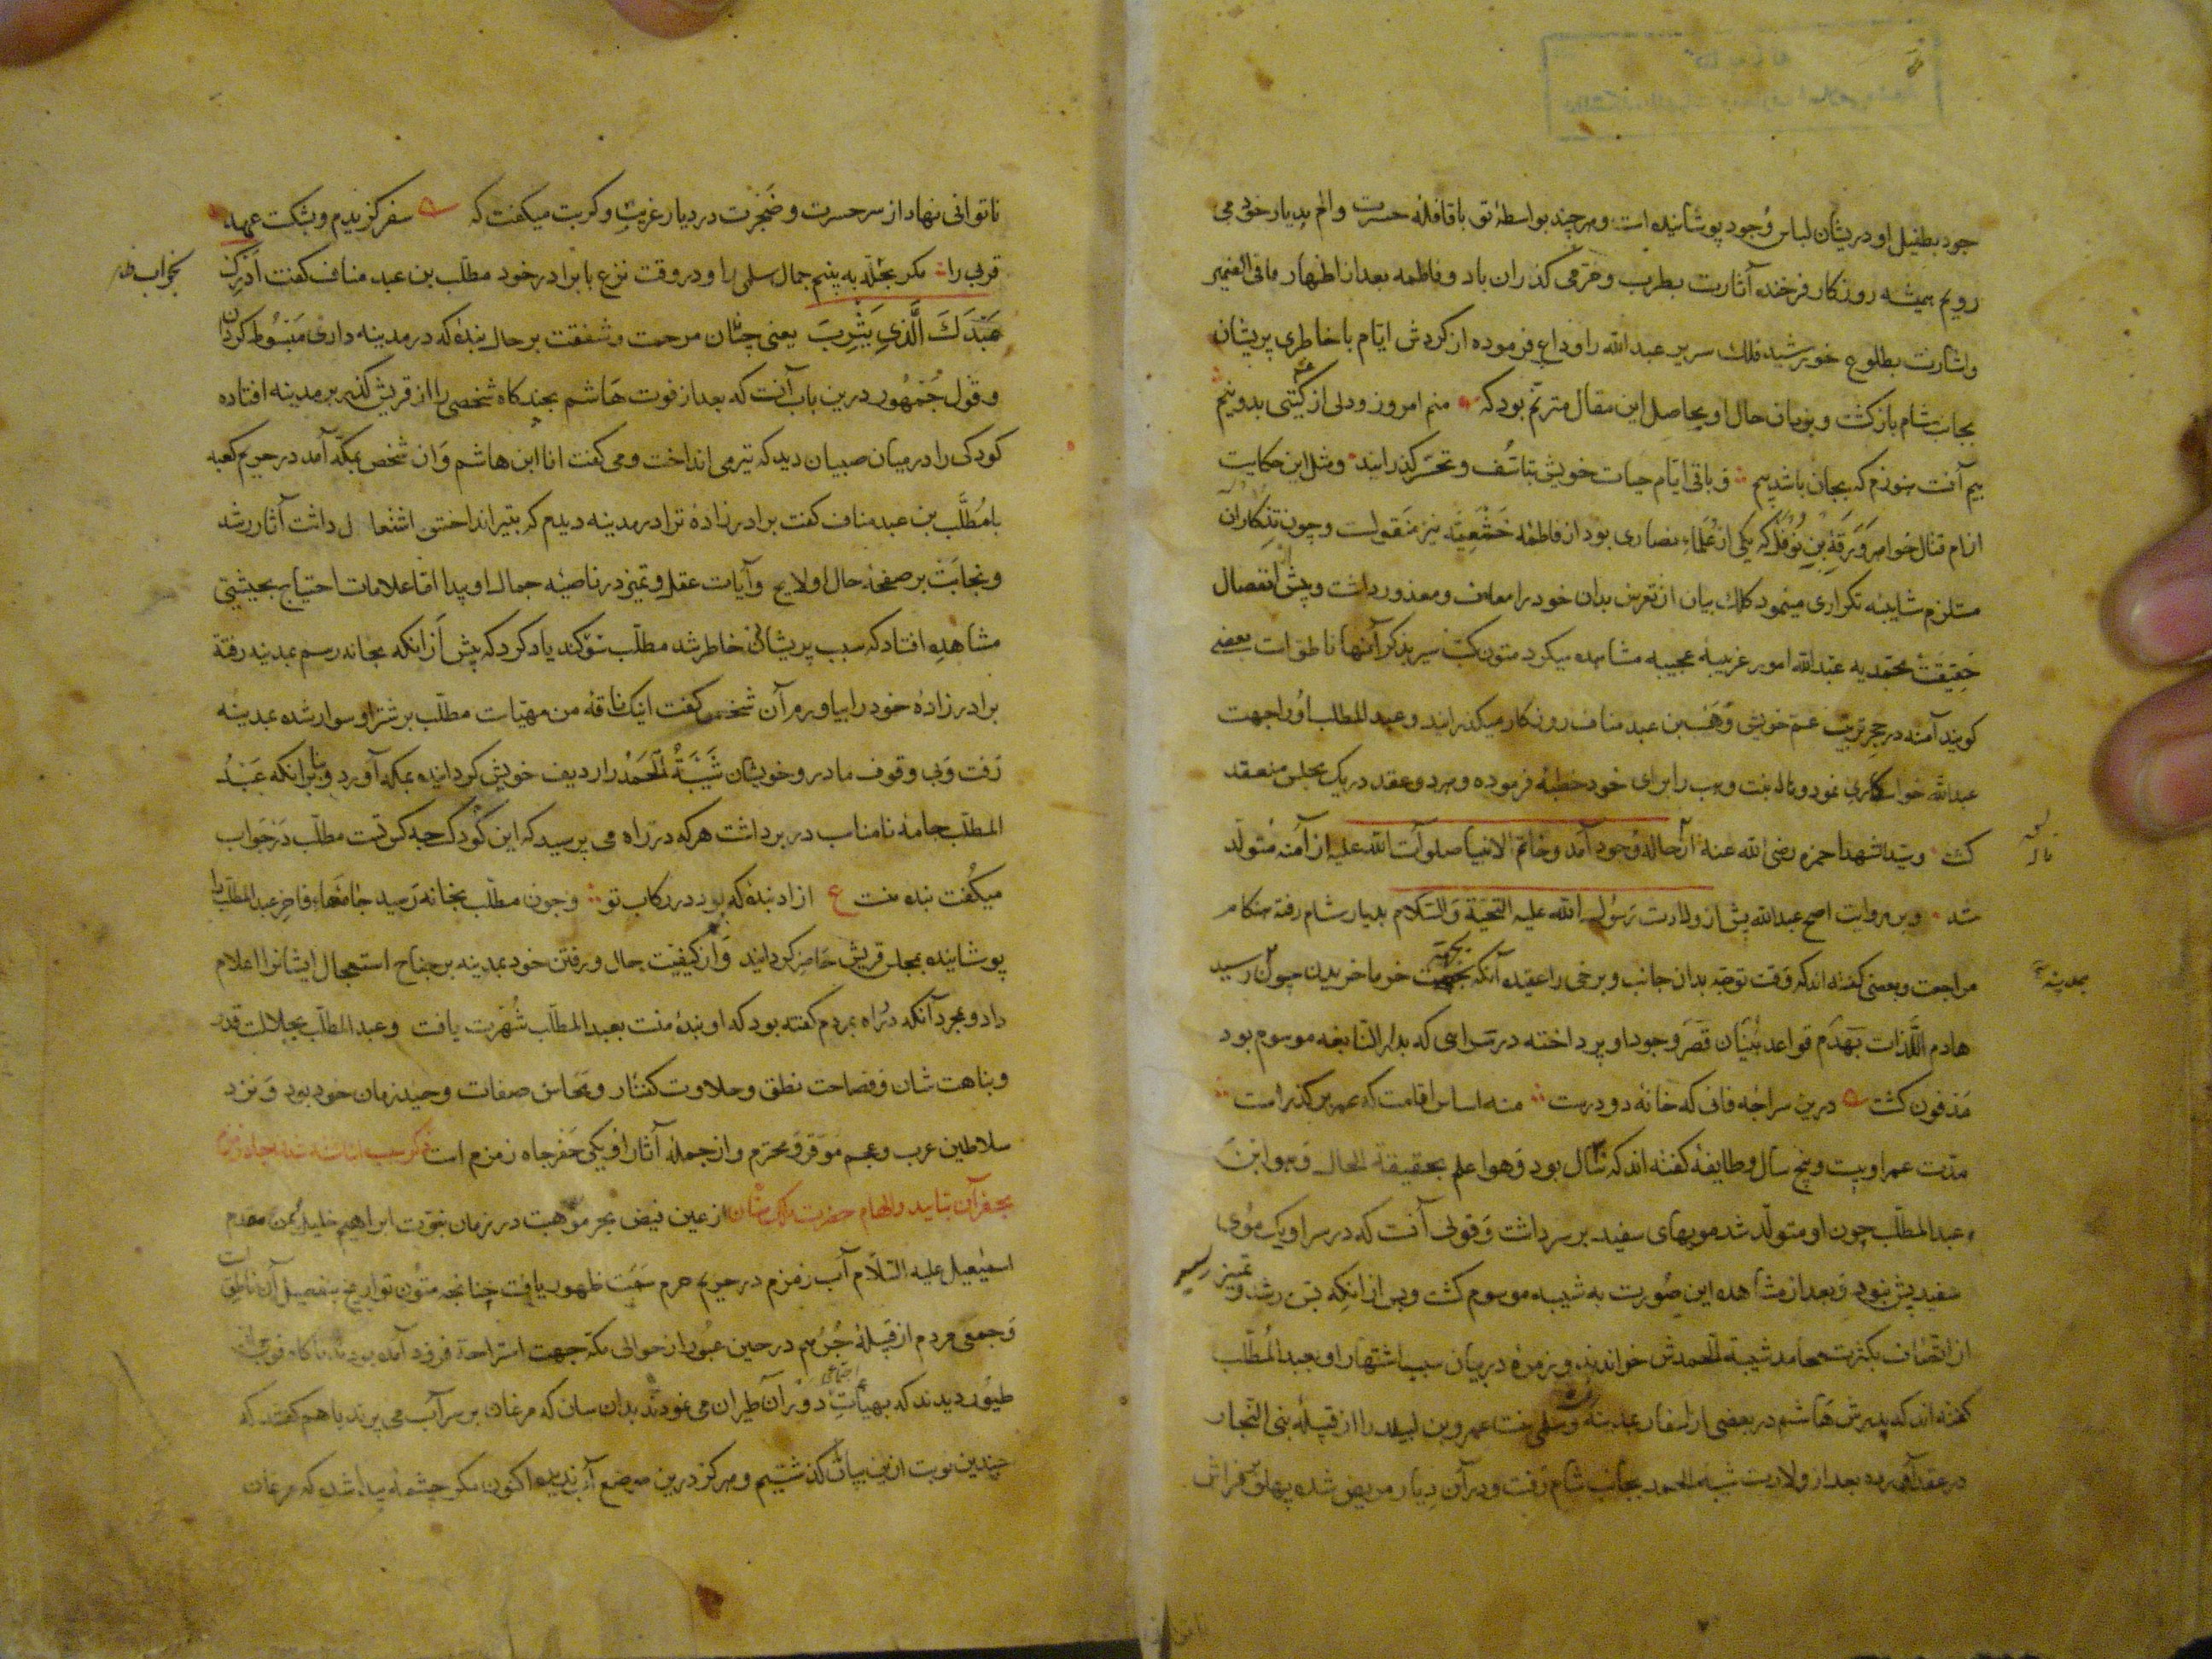 جود بطفیل او در ایشان لباس وجود پوشانیده است و هر چند بواسطه تو با قافله حسرت و الم بدیار خود می
رویم همیشه روزکار فرخنده آثارت بطرب و خرمی کذران باد و فاطمه بعد از اظهار ما فی الضمیر
و اشارت بطلوع خورشید فلک سریر عبدالله را وداع فرموده از کردش ایام با خاطری پریشان
بجانب شام باز کشت و بزبان حال او بحاصل این مقال مترنم بود که منم امروز و دلی از کیتی بدو نیم
بیم آنست هنوزم که بجان باشد بیم و باقی ایام حیات خویش بتاسف و تحسر کذرانید و مثل این حکایت
از ام قتال خواهر ورقة بن نوفل که یکی از علماء نصاری بود از فاطمه خثعمیه نیز منقولست و چون تذکار آن
مستلزم شایبه تکراری مینمود کلک بیان از تعرض بدان خود را معاف و معذور داشت و پیش از انفصال
حقیقت محمدیه عبدالله امور غریبه عجیبه مشاهده میکرد متون کتب سیر بذکر آنها ناطق است بعضی
کویند آمنه در حجر تربیت عم خویش وهب بن عبد مناف روزکار میکذرانید و عبد المطلب او را جهت
عبدالله خواستکاری نمود و هاله بنت وهب را برای خود خطبه فرموده و هر دو عقد در یک مجلس منعقد
کشت و سید الشهدا حمزه رضی الله عنه از هاله بوجود آمد و خاتم الانبیا صلوات الله علیه از آمنه متولد
شد و بر روایت اصح عبدالله پیش از ولادت رسول الله علیه التحیة والسلام بدیار شام رفته هنکام
مراجعت و بعضی کفته اند که وقت توجه بدان جانب و برخی را عقیده آنکه بجهت خرما خریدن چون رسید
بمدینه
هادم اللذات بهدم قواعد بنیان قصر وجود او پرداخته در سرایی که بدار النابغه موسوم بود
مدفون کشت درین سراچه فانی که خانه دو درست منه اساس اقامت که عمر بر کذر است
مدت عمر او بیست و پنج سال و طایفه کفته اند که سال بود و هو اعلم بحقیقة الحال و هو ابن
عبد المطلب چون او متولد شد مویهای سفید بر سر داشت و قولی آنست که در سر او یک موی
سفید بیش نبود و بعد از مشاهده این صورت به شیبه موسوم کشت و پس از انکه بسن رشد و تمیز رسید
از اتصاف بکثرت محامد شیبة الحمدش خواندند و زمره در بیان سبب اشتهار او بعبد المطلب
کفته اند که پدرش هاشم در بعضی از اسفار بمدینه رفته و سلمی بنت عمرو بن لبید را از قبیله بنی النجار
در عقد آورده بعد از ولادت شیبة الحمد بجانب شام رفت و در آن دیار مریض شده پهلو بر فراش
ناتوانی نهاد از سر حسرت و ضجرت در دیار غربت و کربت میکفت که سفر کزیدم و بشکست عهد
قربی را مکر بحله ببینم جمال سلمی را و در وقت نزع با برادر خود مطلب بن عبد مناف کفت ادرک
عبدک الذی بیثرب یعنی چنان مرحمت و شفقت بر حال بنده که در مدینه داری مبسوط کردان
و قول جمهور درین باب آنست که بعد از فوت هاشم بچند کاه شخصی را از قریش کذر بر مدینه افتاده
کودکی را در میان صبیان دید که تیر می انداخت و می کفت انا ابن هاشم و ان شخص بمکه آمد در حریم کعبه
با مطلب بن عبد مناف کفت برادر زاده ترا در مدینه دیدم که بتیر انداختن اشتغال داشت آثار رشد
و نجابت بر صفحه حال او لایح و آیات عقل و تمیز در ناصیه جمال او پیدا اما علامات احتیاج بحیثیتی
مشاهده افتاد که سبب پریشانی خاطر شد مطلب سوکند یاد کرد که پیش از انکه بخانه رسم بمدینه رفته
برادر زاده خود را بیاورم آن شخص کفت اینک ناقه من مهیاست مطلب بر شتر او سوار شده بمدینه
رفت و بی وقوف مادر و خویشان شیبة الحمد را ردیف خویش کردانیده بمکه آورد و بنا بر انکه عبد
المطلب جامه نامناسب در بر داشت هر که در راه می پرسید که این کودک چه کس تست مطلب در جواب
میکفت بنده منست ع ازاد بنده که بود در رکاب تو و چون مطلب بخانه رسید جامهاء فاخر عبد المطلب را
پوشانیده بمجلس قریش حاضر کردانید و از کیفیت حال و رفتن خود بمدینه بر جناح استعجال ایشانرا اعلام
داد و بمجرد آنکه در راه بمردم کفته بود که او بنده منست بعبد المطلب شهرت یافت و عبد المطلب بجلالت قدر
و نباهت شان و فصاحت نطق و حلاوت کفتار و محاسن صفات وحید زمان خود بود و نزد
سلاطین عرب و عجم موقر و محترم و از جمله آثار او یکی حفر چاه زمزم است ذکر سبب
بحفر آن بتایید و الهام حضرت ملک منان از عین فیض بحر موهبت در زمان نبوت ابراهیم خلیل بیمن مقدم
اسمعیل علیه السلام آب زمزم در حریم حرم سمت ظهور یافت چنانچه متون تواریخ بتفصیل آن ناطق است
و جمعی مردم از قبیله جرهم در حین عبور از حوالی مکه جهت استراحت فرود آمده بودند ناکاه فوجی از
طیور دیدند که بهیأت اجتماعی در آن طیران می نمودند بدان سان که مرغان بر سر آب می پرند با هم کفتند که
چندین نوبت ازین بیابان کذشتیم و هرکز درین موضع آب ندیدیم اکنون مکر چشمه پیدا شده که مرغان